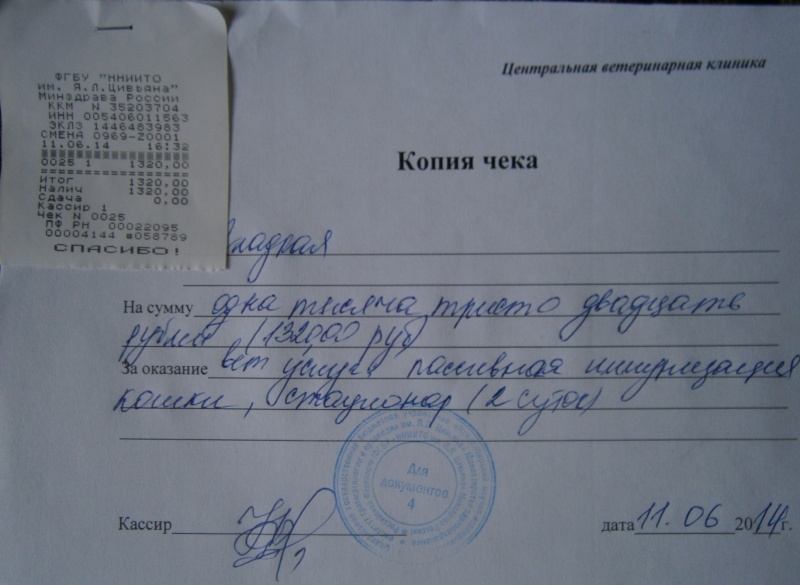 ФГБУ "ННИИТО
им. Я.Л.Цивьяна"
Минздрава России
ККМ N 35203704
ИНН 005406011563
ЭКЛЗ 1446483983
СМЕНА 0969-Z0001
11.06.14 16:32
0025 1 1320,00
Итог 1320,00
Налич 1320,00
Сдача 0,00
Кассир 1
Чек N 0025
ПФ РН 00022095
00004144 #058789
СПАСИБО!
Центральная ветеринарная клиника
Копия чека
На сумму одна тысяча тристо двадцать
рублей (1320,00 руб)
За оказание вет услуги пассивная иммунизация
кошки, стационар (2 суток)
Для
документов
4
Кассир
дата 11.06 2014г.